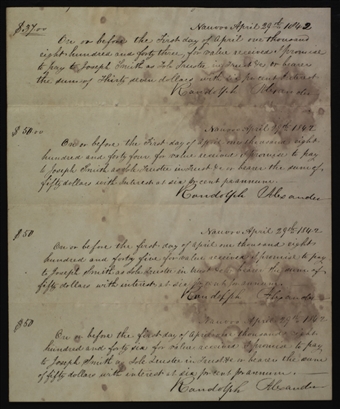 $37.00 Nauvoo April 29th 1842
On or before the first day of april one thousand
eight hundred and forty three, for value received I promise
to pay to Joseph Smith as Sole Trustee, in trust &c or bearer
the sum of Thirty seven dollars with six per cent interest
Randolph Alexander
$50.00 Nauvoo April 29th 1842
On or before the first day of april one thousand eight
hundred and forty four for value received I promise to pay
to Joseph Smith as Sole Trustee in Trust &c or bearer the sum of
fifty dollars with interest at six per cent per annum
Randolph Alexander
$50 Nauvoo April 29th 1842
On or before the first day of april one thousand eight
hundred and forty five for value received I promise to pay
to Joseph Smith as Sole Trustee in trust &c or bearer the sum of
fifty dollars with interest at six per cent per annum
Randolph Alexander
$50 Nauvoo April 29th 1842
On or before the first day of april one thousand eight
hundred and forty six for value received I promise to pay
to Joseph Smith as Sole Trustee in Trust &c or bearer the sum
of fifty dollars with interest at six per cent per annum
Randolph Alexander